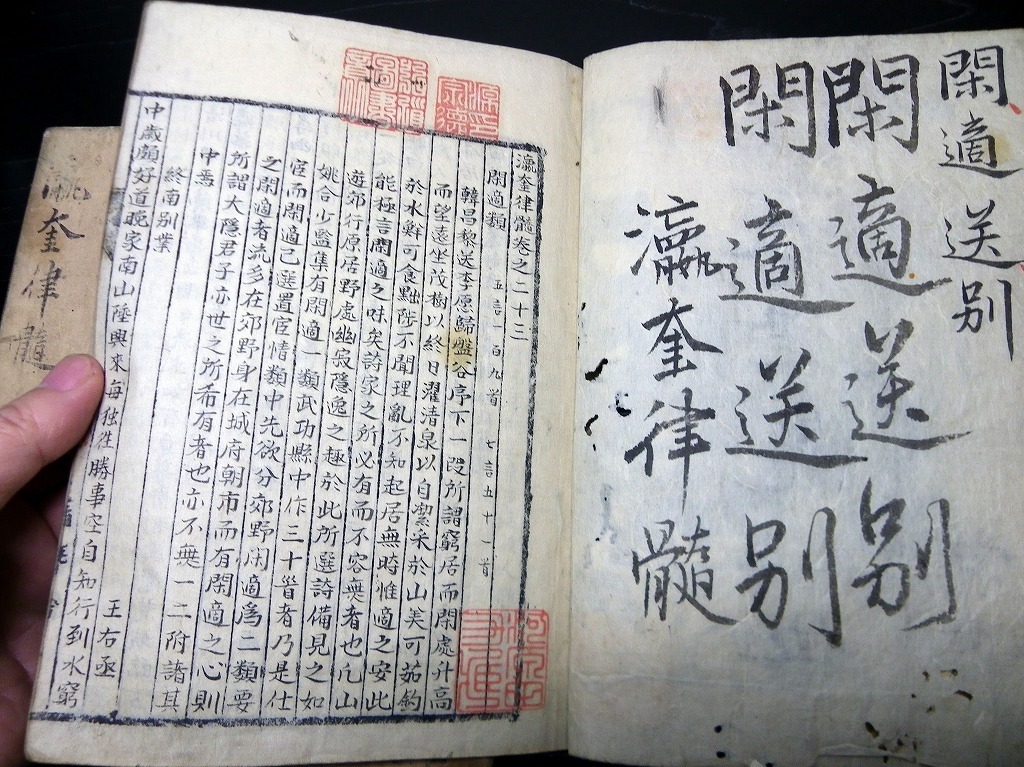 閑適 送别
閑適送别
閑適送别
瀛奎律髓
瀛奎律髓卷之二十三
閑適類 五言一百九首 七言五十一首
韓昌黎送李愿歸盤谷序下一段所謂窮居而閑處升高
而望遠坐茂樹以終日濯清泉以自潔采於山美可茹釣
於水鮮可食黜陟不聞理亂不知起居無時惟適之安此
能極言閑適之味矣詩家之所必有而不容無者也凡山
遊郊行原居野處幽寂隱逸之趣於此所選詩備見之如
姚合少監集有閑適一類武功縣中作三十首者乃是仕
宦而閑適已選置宦情類中先欲分郊野閑適爲二類要
之閑適者流多在郊野身在城府朝市而有閑適之心則
所謂大隱君子亦世之所希有者也亦不無一二附諸其
中焉
終南别業 王右丞
中歲頗好道晚家南山陲興來每独往勝事空自知行到水窮
奎律髓